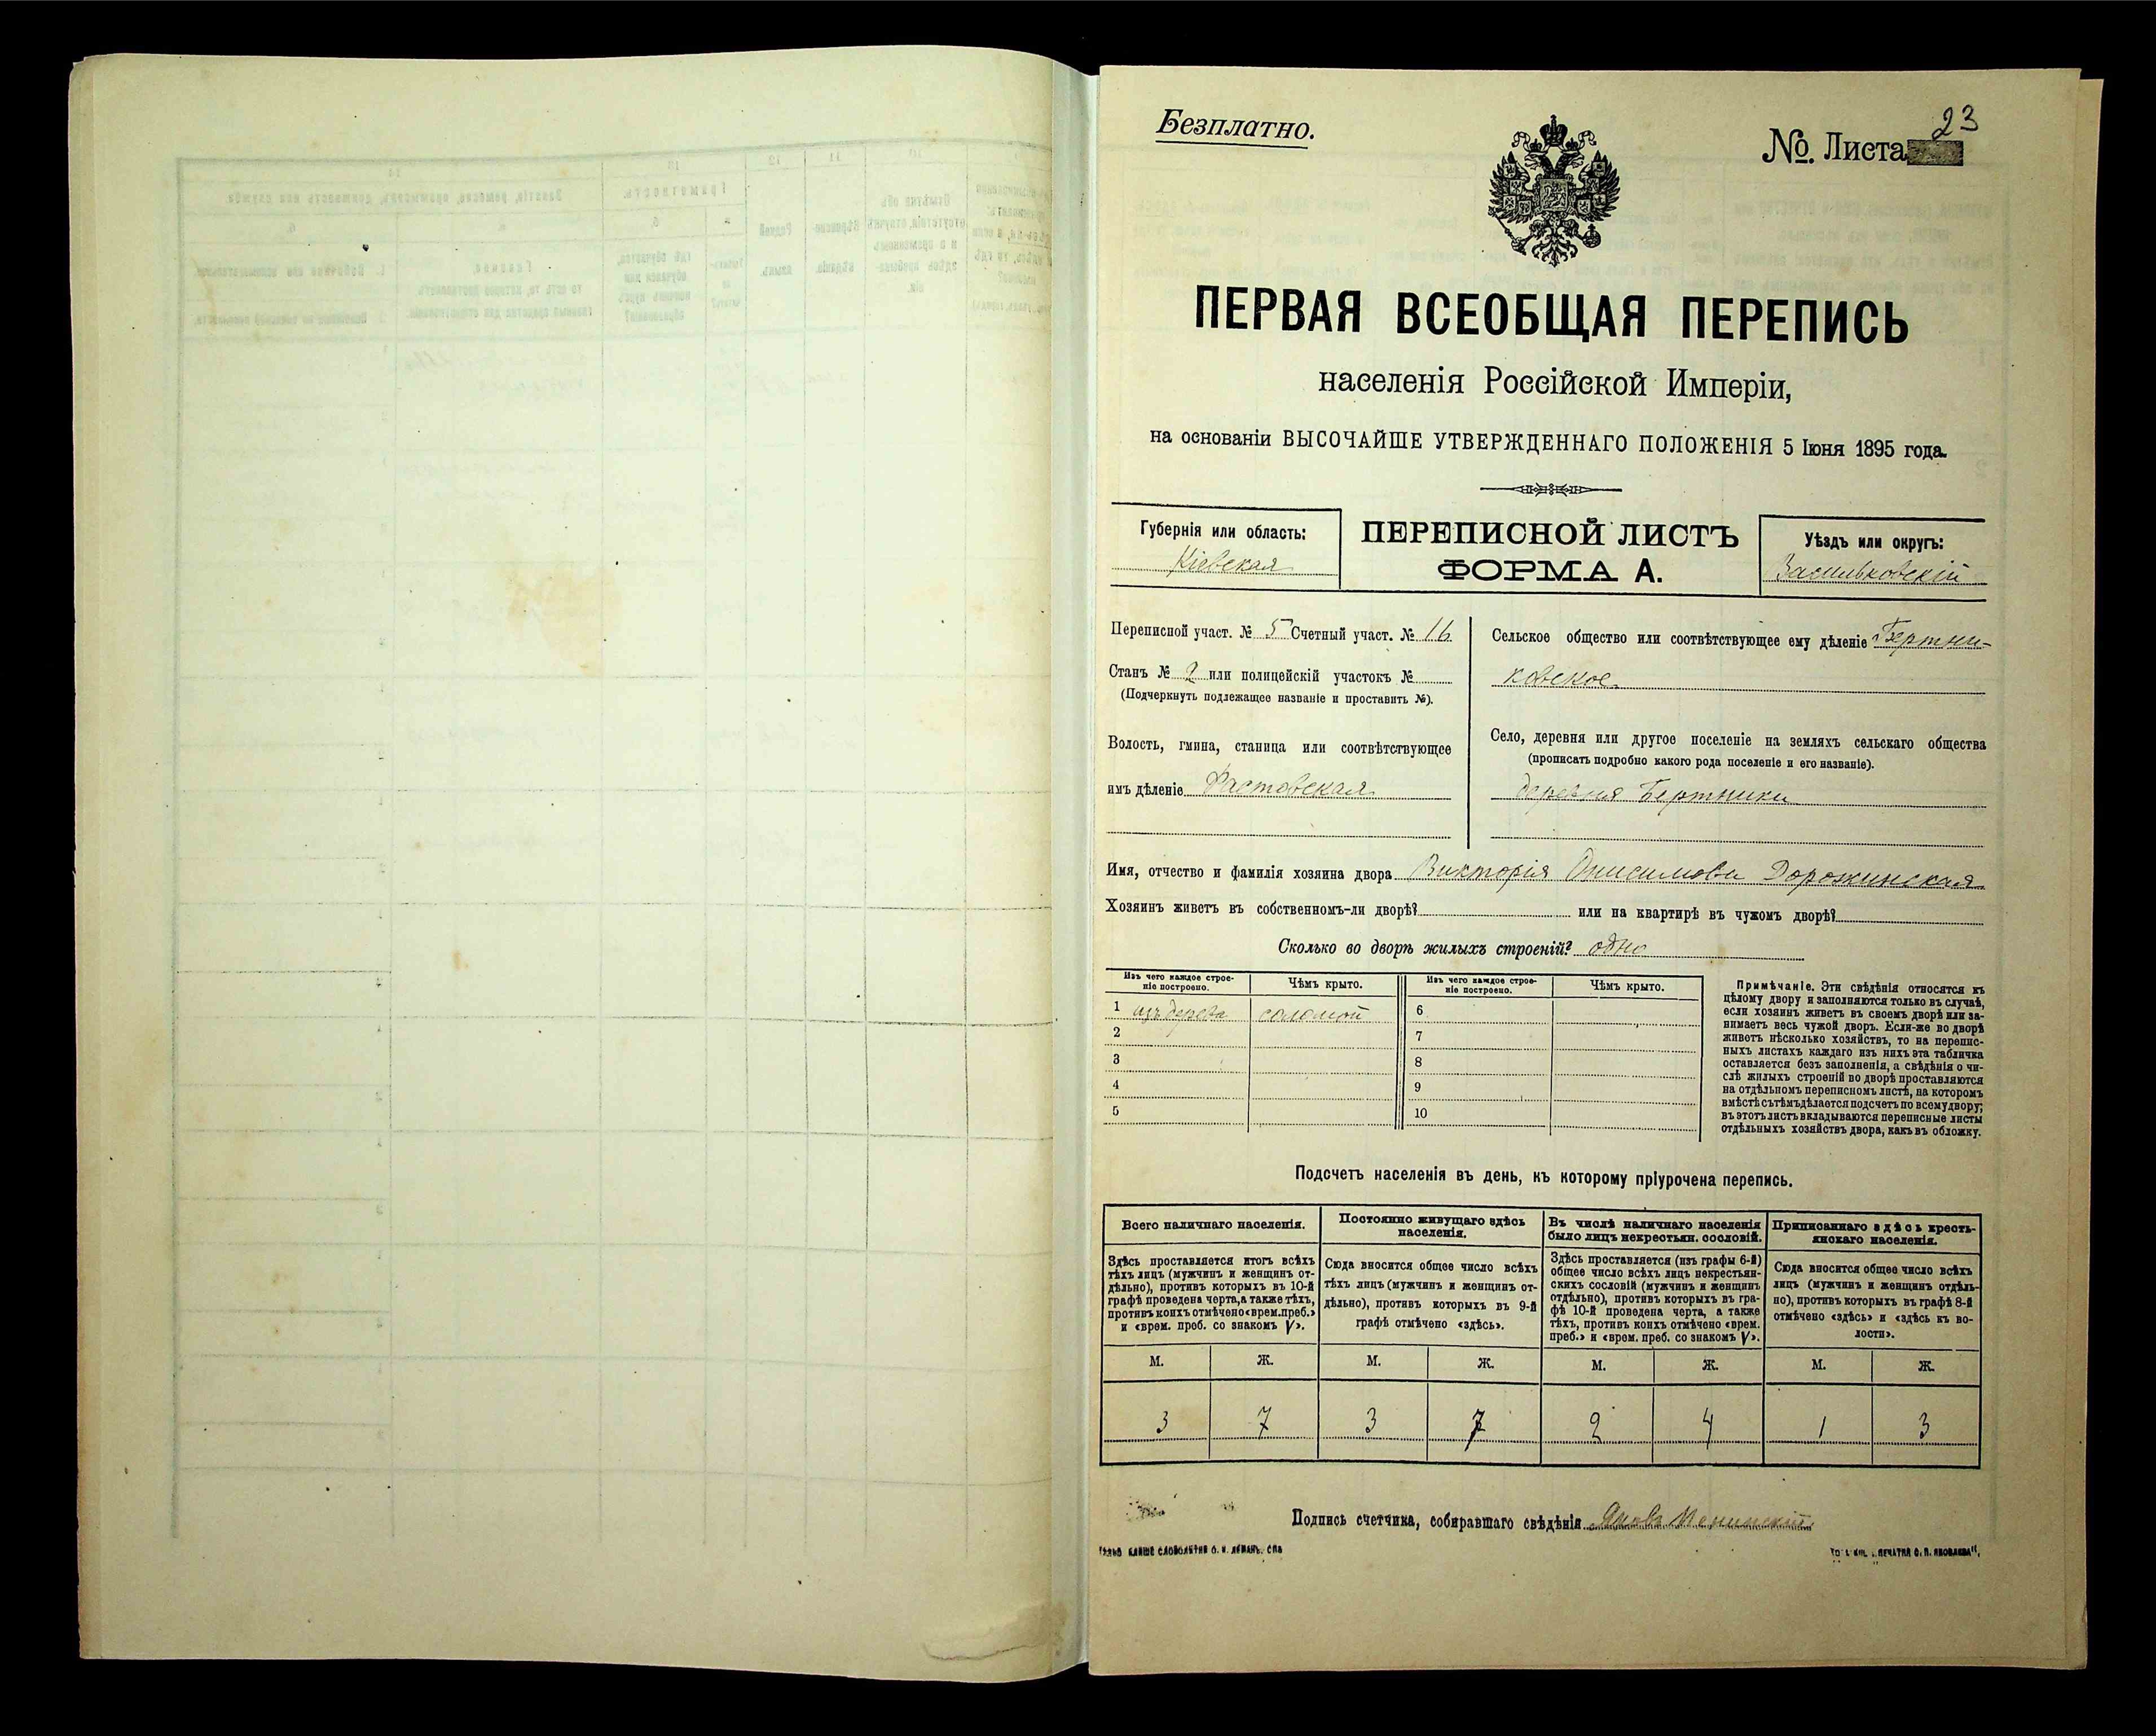 Безплатно.
№. Листа 23
ПЕРВАЯ ВСЕОБЩАЯ ПЕРЕПИСЬ
населенія Россійской Имперіи,
на основаніи ВЫСОЧАЙШЕ УТВЕРЖДЕННАГО ПОЛОЖЕНІЯ 5 Іюня 1895 года.
Губернія или область:
Кіевская
ПЕРЕПИСНОЙ ЛИСТЪ
ФОРМА А.
Уѣздъ или округъ:
Васильковскій
Переписной участ. № 5 Счетный участ. № 16
Станъ № 2 или полицейскій участокъ №
(Подчеркнуть подлежащее названіе и проставить №).
Волость, гмина, станица или соотвѣтствующее
имъ дѣленіе Фастовская
Сельское общество или соотвѣтствующее ему дѣленіе Бертни-
ковское
Село, деревня или другое поселеніе на земляхъ сельскаго общества
(прописать подробно какого рода поселеніе и его названіе).
деревня Бертники
Имя, отчество и фамилія хозяина двора Викторія Онисимова Дорожинская
Хозяинъ живетъ въ собственномъ-ли дворѣ? или на квартирѣ въ чужомъ дворѣ?
Сколько во дворѣ жилыхъ строеній? одно
Изъ чего каждое строе-
ніе построено.
Чѣмъ крыто.
Изъ чего каждое строе-
ніе построено.
Чѣмъ крыто.
1 изъ дерева соломой 6
2 7
3 8
4 9
5 10
Примѣчаніе. Эти свѣдѣнія относятся къ
цѣлому двору и заполняются только въ случаѣ,
если хозяинъ живетъ въ своемъ дворѣ или за-
нимаетъ весь чужой дворъ. Если-же во дворѣ
живетъ нѣсколько хозяйствъ, то на перепис-
ныхъ листахъ каждаго изъ нихъ эта табличка
оставляется безъ заполненія, а свѣдѣнія о чи-
слѣ жилыхъ строеній во дворѣ проставляются
на отдѣльномъ переписномъ листѣ, на которомъ
вмѣстѣ съ тѣмъ дѣлается подсчетъ по всему двору;
въ этотъ листъ вкладываются переписные листы
отдѣльныхъ хозяйствъ двора, какъ въ обложку.
Подсчетъ населенія въ день, къ которому пріурочена перепись.
Всего наличнаго населенія.
Здѣсь проставляется итогъ всѣхъ
тѣхъ лицъ (мужчинъ и женщинъ от-
дѣльно), противъ которыхъ въ 10-й
графѣ проведена черта, а также тѣхъ,
противъ коихъ отмѣчено «врем. преб.»
и «врем. преб. со знакомъ V».
Постоянно живущаго здѣсь
населенія.
Сюда вносится общее число всѣхъ
тѣхъ лицъ (мужчинъ и женщинъ от-
дѣльно), противъ которыхъ въ 9-й
графѣ отмѣчено «здѣсь».
Въ числѣ наличнаго населенія
было лицъ некрестьян. сословій.
Здѣсь проставляется (изъ графы 6-й)
общее число всѣхъ лицъ некрестьян-
скихъ сословій (мужчинъ и женщинъ
отдѣльно), противъ которыхъ въ гра-
фѣ 10-й проведена черта, а также
тѣхъ, противъ коихъ отмѣчено «врем.
преб.» и «врем. преб. со знакомъ V».
Приписаннаго здѣсь кресть-
янскаго населенія.
Сюда вносится общее число всѣхъ
лицъ (мужчинъ и женщинъ отдѣль-
но), противъ которыхъ въ графѣ 8-й
отмѣчено «здѣсь» и «здѣсь къ во-
лости».
М. Ж. М. Ж. М. Ж. М. Ж.
3 7 3 7 2 4 1 3
Подпись счетчика, собиравшаго свѣдѣнія
СЛОВОЛИТНЯ О. И. ЛЕМАНЪ, СПБ
ПЕЧАТНЯ С. П. ЯКОВЛЕВА",